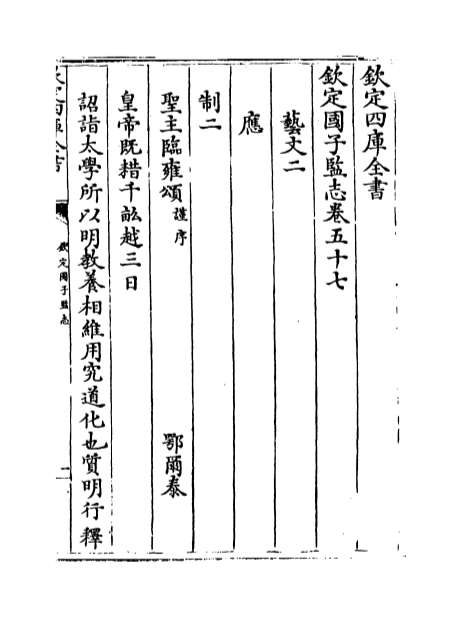 欽定四庫全書
欽定國子監志卷五十七
藝文二
應
制二
聖主臨雍頌謹序　鄂爾泰
皇帝既耤千畝越三日
詔詣太學所以明教養相維用究道化也質明行釋
欽定國子監志
二